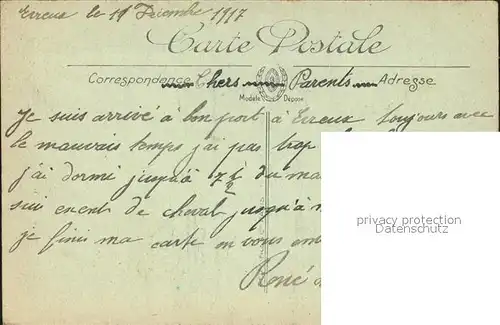 Erreux le 19 Décembre 1917
Carte Postale
Correspondance Chers Parents Adresse
Modèle Déposé
Je suis arrivé à bon port à Erreux toujours avec
le mauvais temps j'ai pas trop
j'ai dormi jusqu'à 7 1/2 du ma
sui encent de cheval jusqu'à
je finis ma carte en vous em
René
privacy protection
Datenschutz